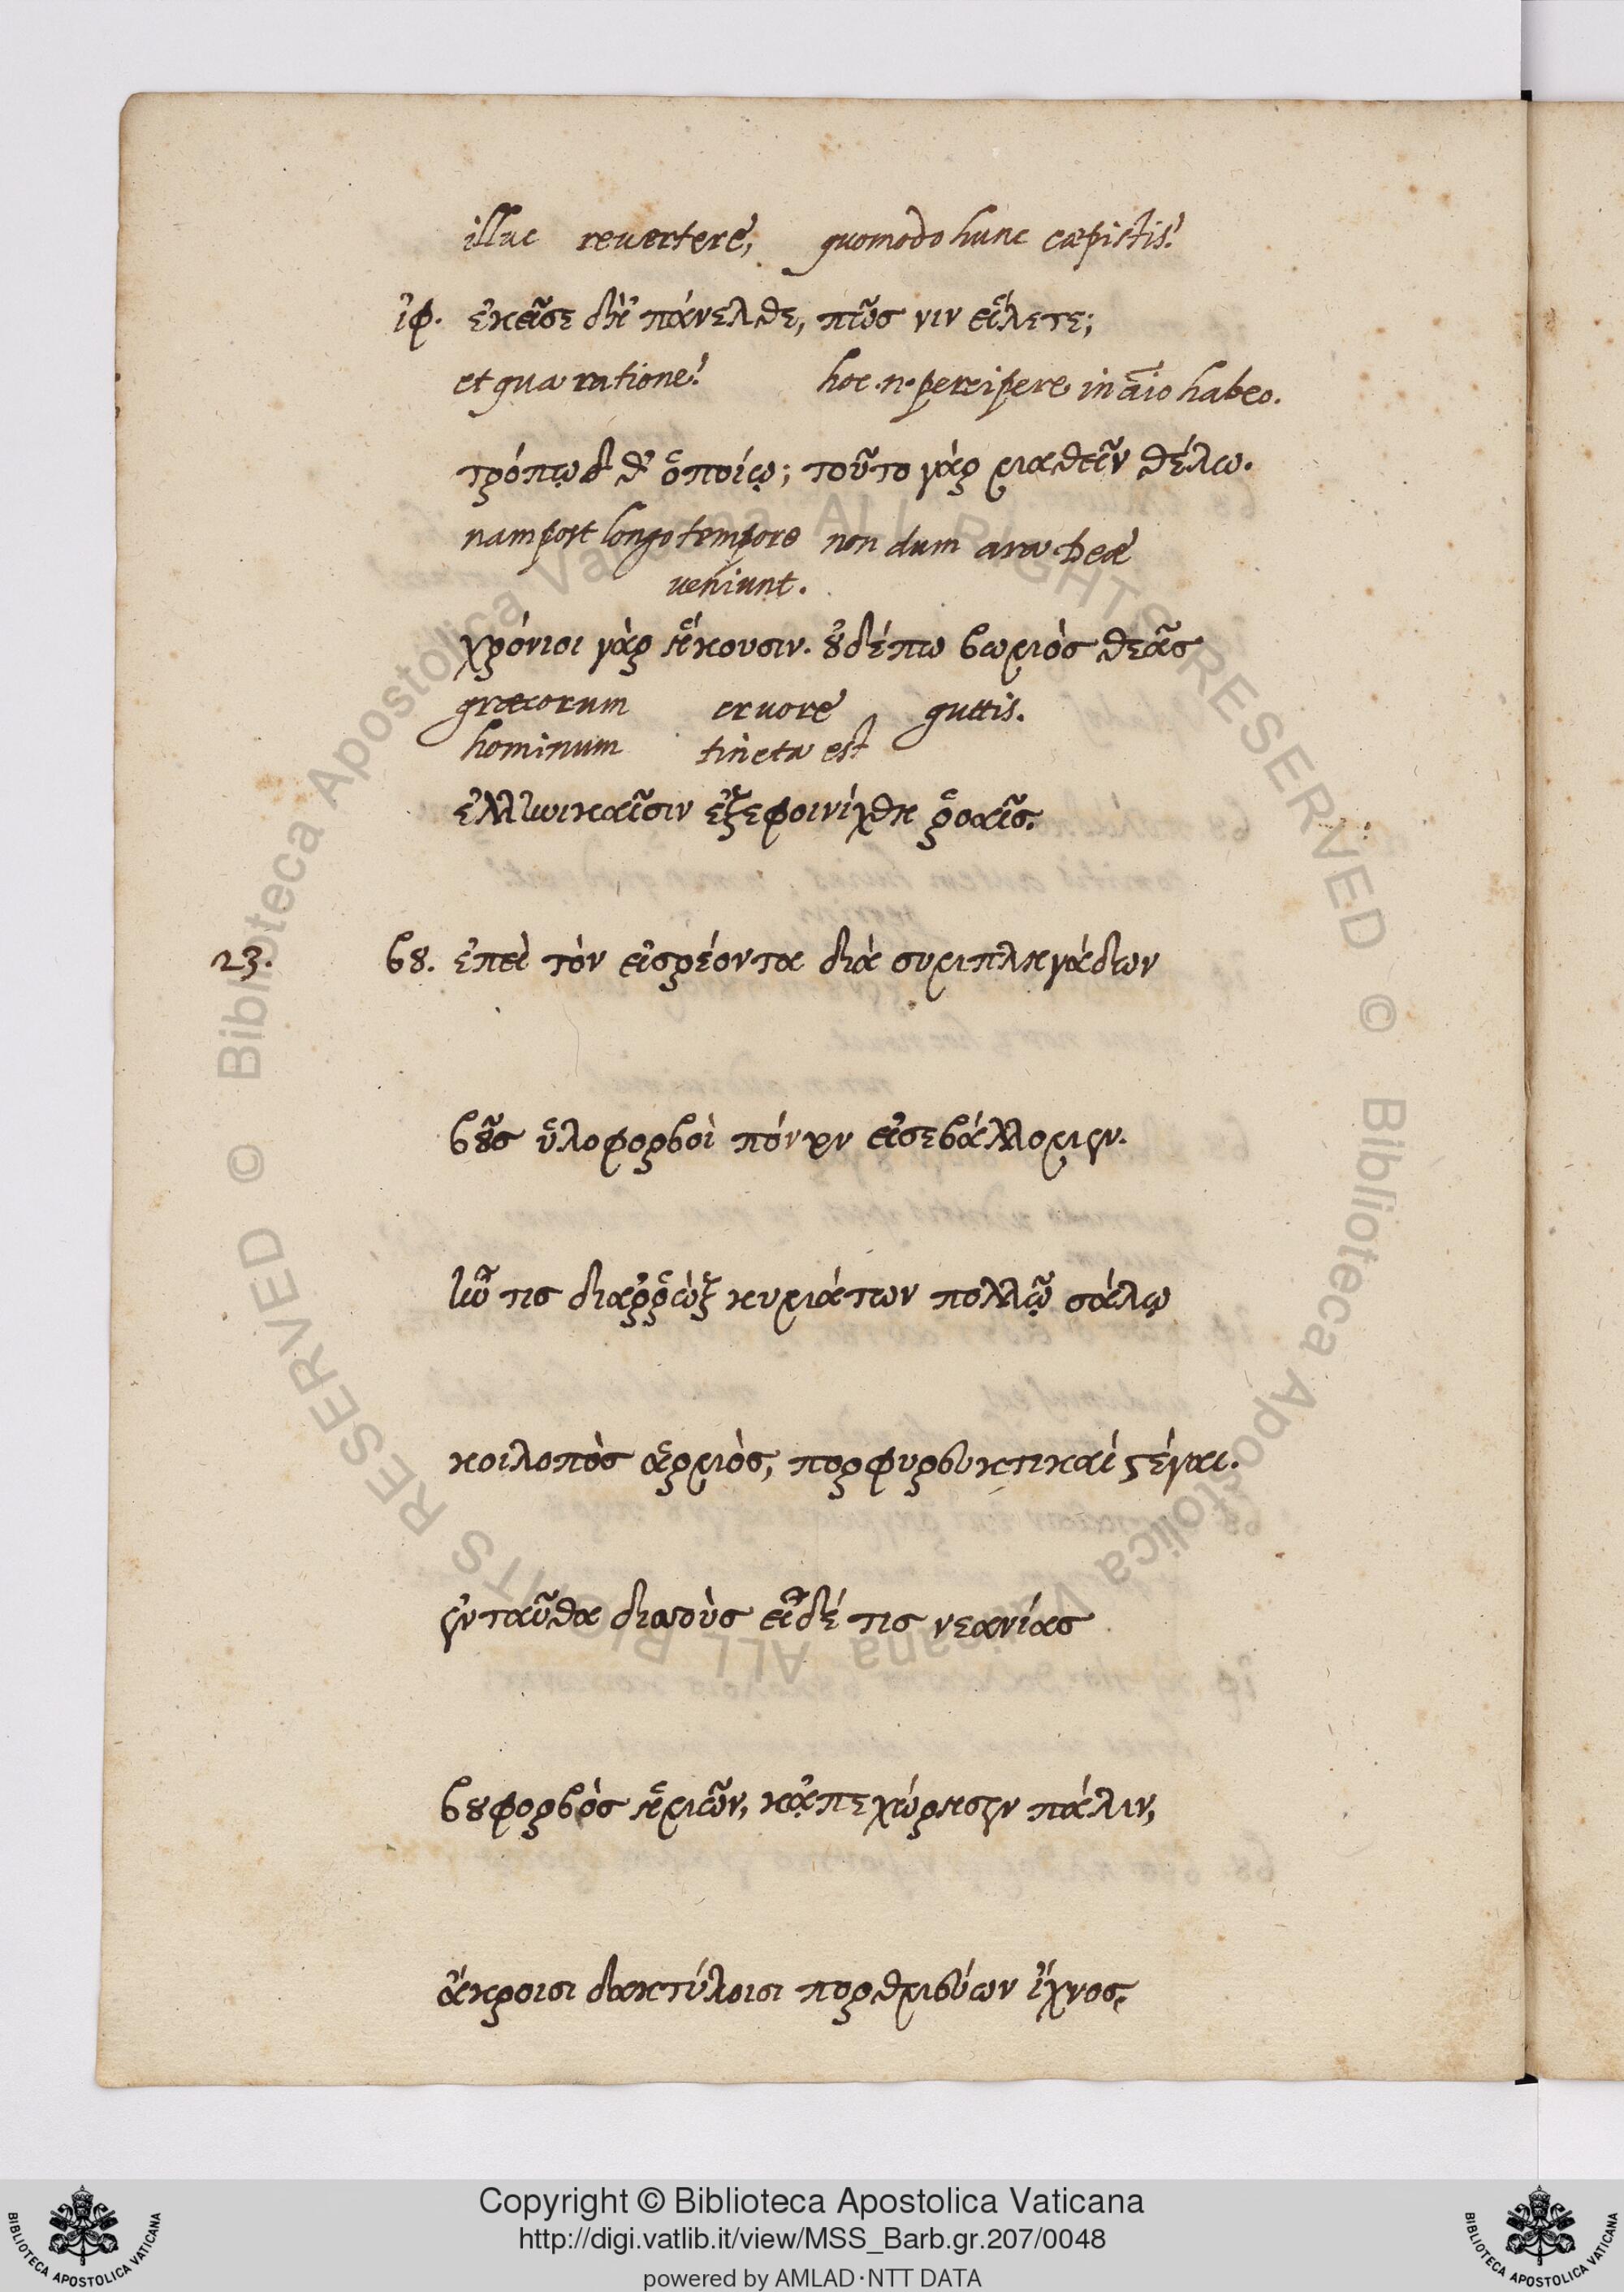 illuc revertere, quomodo hunc cœpistis?
ἰφ. ἐκεῖσε δὴ 'πάνελθε, πῶς νιν εἵλετε;
et qua ratione? hoc .n. percipere in aĩo habeo.
τρόπῳ θ' ὁποίῳ; τοῦτο γὰρ μαθεῖν θέλω.
nam post longo tempore non dum ara Deæ
veniunt.
χρόνιοι γὰρ ἥκουσιν. οὐδέπω βωμὸς θεᾶς
græcorum cruore guttis.
hominum tincta est
ἑλληνικαῖσιν ἐξεφοινίχθη ῥοαῖς.
23. βου. ἐπεὶ τὸν εἰσρέοντα διὰ συμπληγάδων
βοῦς ὑλοφορβοὶ πόντον εἰσεβάλλομεν.
ἦν τις διαῤῥὼξ κυμάτων πολλῷ σάλῳ
κοιλοπὸς ἁρμὸς, πορφυρευτικαὶ στέγαι.
ἐνταῦθα δισσοὺς εἶδέ τις νεανίας
βουφορβὸς ἡμῶν, κἀπεχώρησεν πάλιν,
ἄκροισι δακτύλοισι πορθμεύων ἴχνος,
© Biblioteca Apostolica Vaticana ALL RIGHTS RESERVED
© Biblioteca Apostolica Vaticana ALL RIGHTS RESERVED
Copyright © Biblioteca Apostolica Vaticana
http://digi.vatlib.it/view/MSS_Barb.gr.207/0048
powered by AMLAD·NTT DATA
BIBLIOTECA APOSTOLICA VATICANA
BIBLIOTECA APOSTOLICA VATICANA